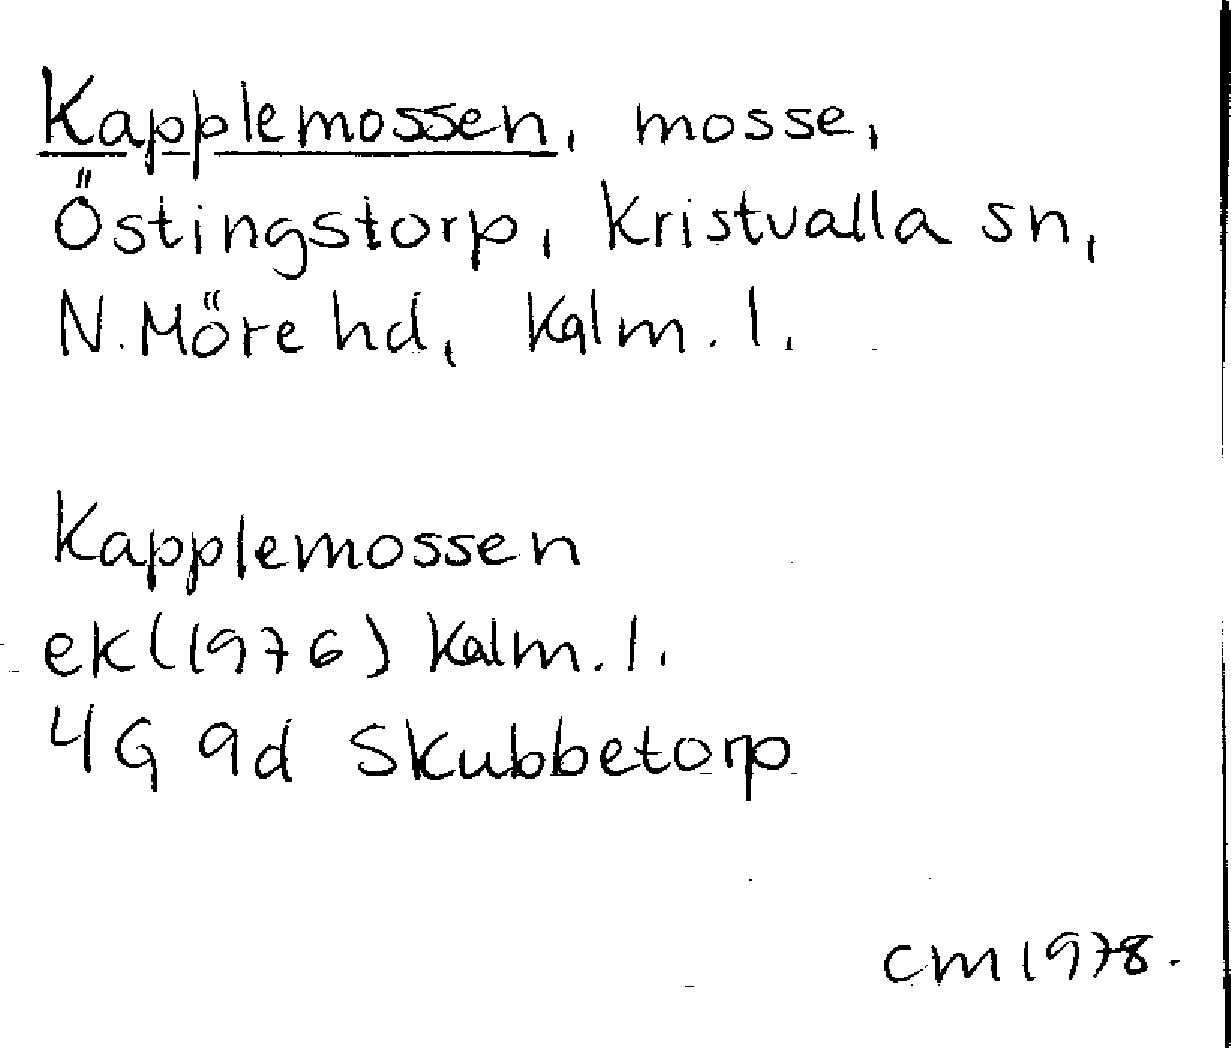 Kapplemossen, mosse,
Östingstorp, Kristvalla sn,
N. Möre hd, Kalm. l.
Kapplemossen
ek (1976) Kalm. l.
4G 9d Skubbetorp
CM 1978.